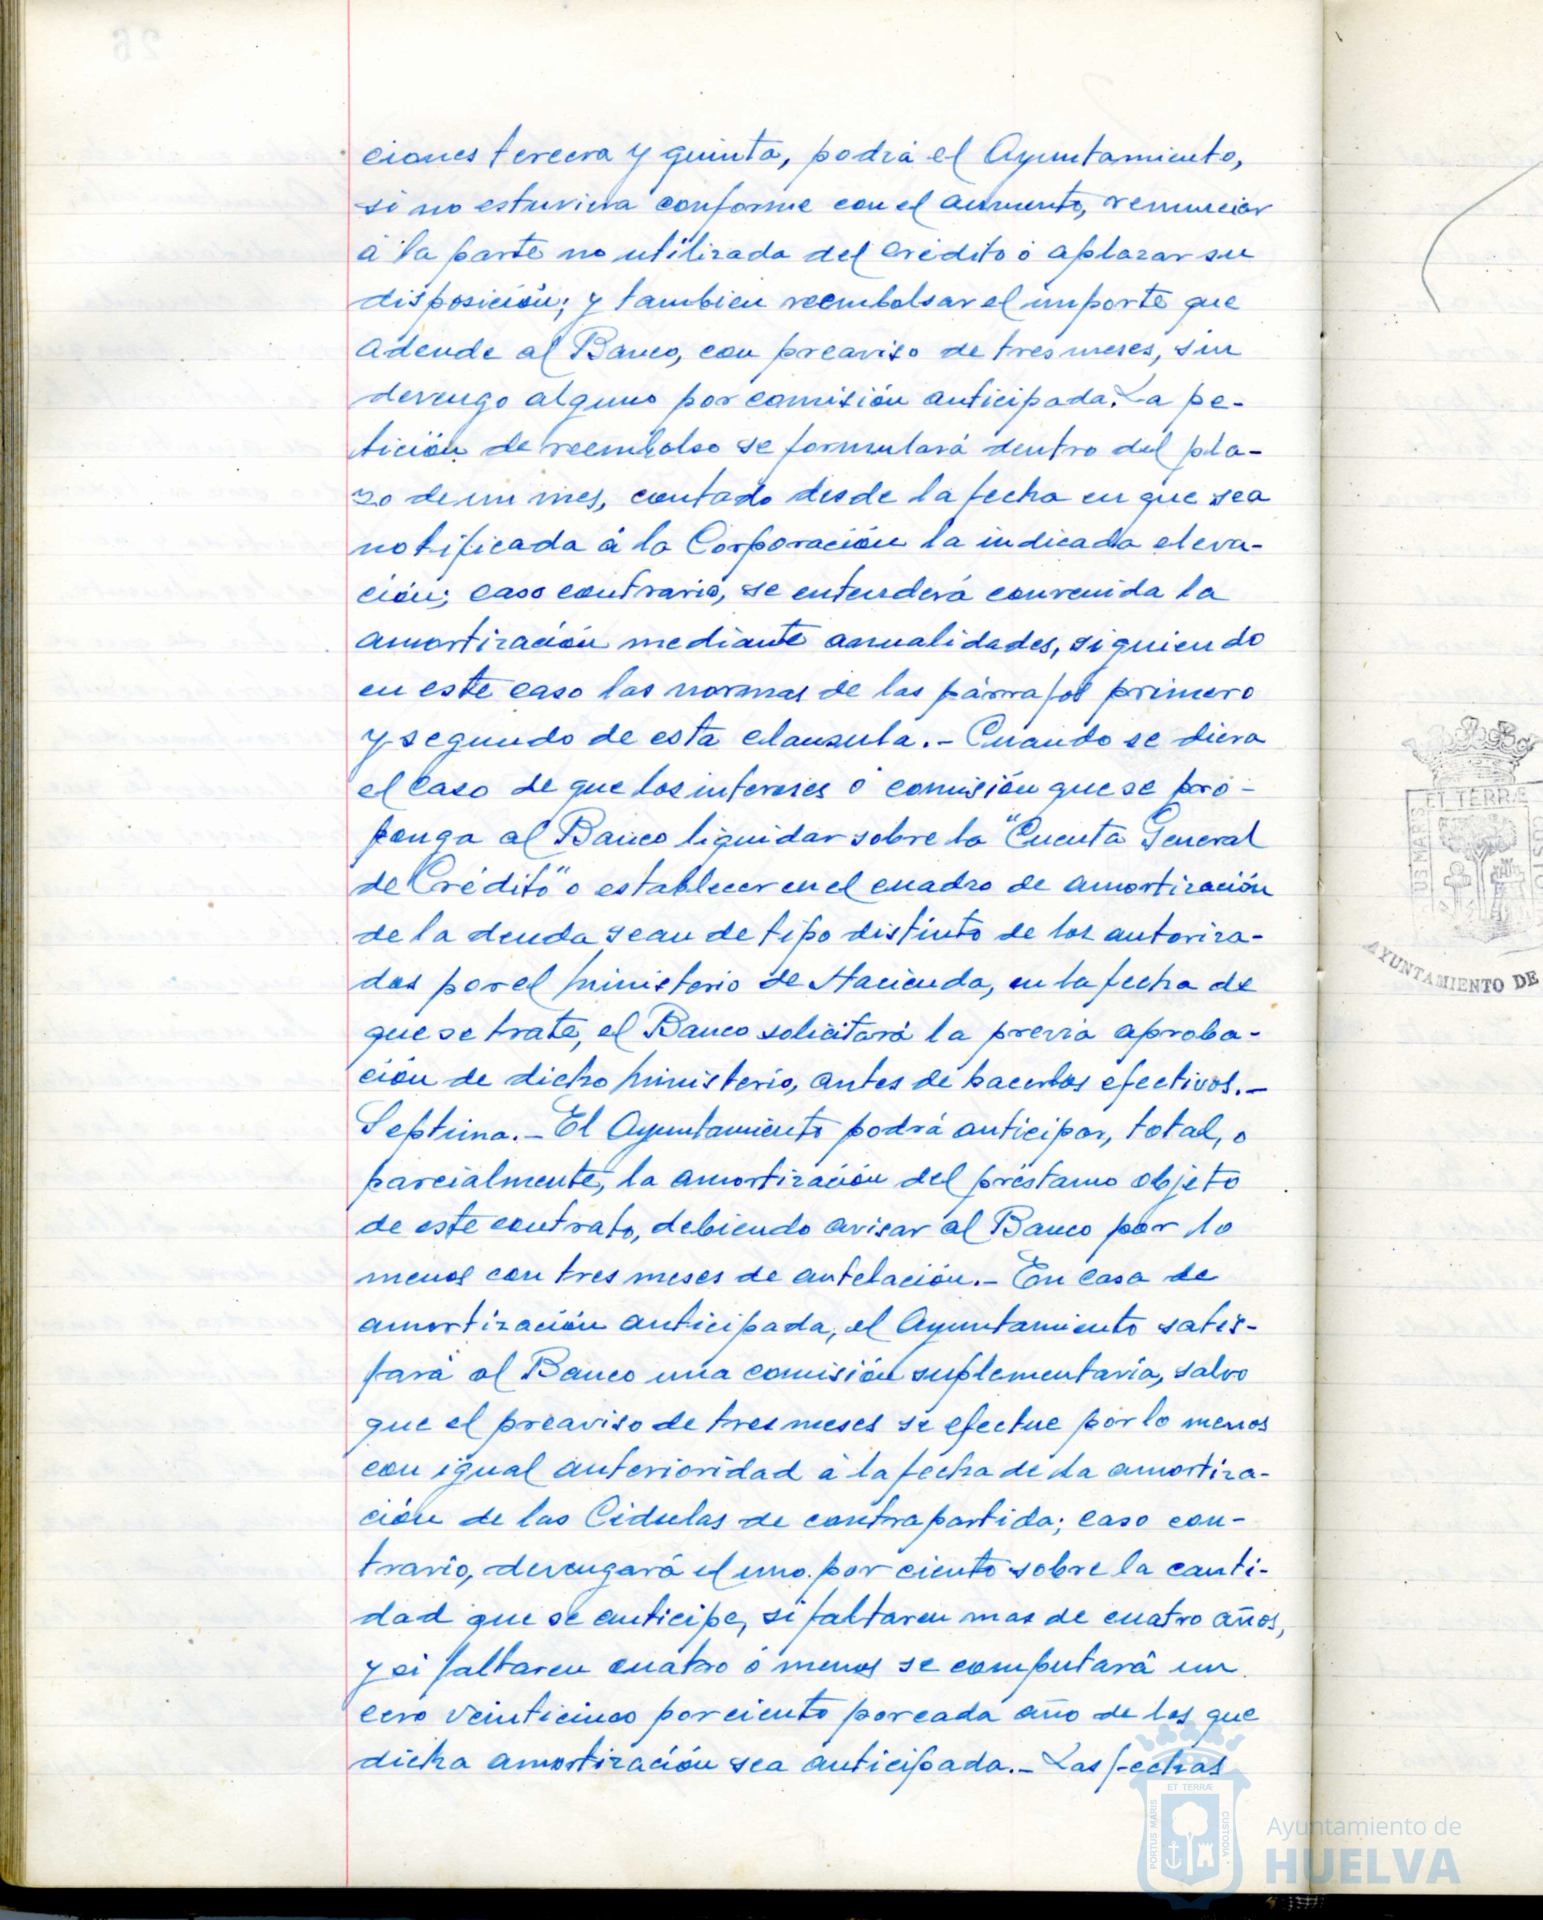 ciones tercera y quinta, podrá el Ayuntamiento,
si no estuviera conforme con el aumento, renunciar
á la parte no utilizada del crédito ó aplazar su
disposición; y tambien reembolsar el importe que
adeude al Banco, con preaviso de tres meses, sin
devengo alguno por comisión anticipada. La pe-
tición de reembolso se formulará dentro del pla-
zo de un mes, contado desde la fecha en que sea
notificada á la Corporación la indicada eleva-
ción; caso contrario, se entenderá convenida la
amortización mediante anualidades, siguiendo
en este caso las normas de las párrafos primero
y segundo de esta clausula.- Cuando se diera
el caso de que los intereses ó comisión que se pro-
ponga al Banco liquidar sobre la "Cuenta General
de Crédito" o establecer en el cuadro de amortización
de la deuda sean de tipo distinto de los autoriza-
dos por el Ministerio de Hacienda, en la fecha de
que se trate, el Banco solicitará la previa aproba-
ción de dicho Ministerio, antes de hacerlos efectivos.-
Septima.- El Ayuntamiento podrá anticipar, total, o
parcialmente, la amortización del préstamo objeto
de este contrato, debiendo avisar al Banco por lo
menos con tres meses de antelación.- En caso de
amortización anticipada, el Ayuntamiento satis-
fará al Banco una comisión suplementaria, salvo
que el preaviso de tres meses se efectue por lo menos
con igual anterioridad á la fecha de la amortiza-
ción de las Cédulas de contrapartida; caso con-
trario, devengará el uno por ciento sobre la canti-
dad que se anticipe, si faltaren mas de cuatro años,
y si faltaren cuatro ó menos se computará un
cero veinticinco por ciento por cada año de los que
dicha amortización sea anticipada.- Las fechas
ET TERRÆ
US MARIS
CUSTO
AYUNTAMIENTO DE
ET TERRÆ
PORTUS MARIS
CUSTODIA
Ayuntamiento de
HUELVA